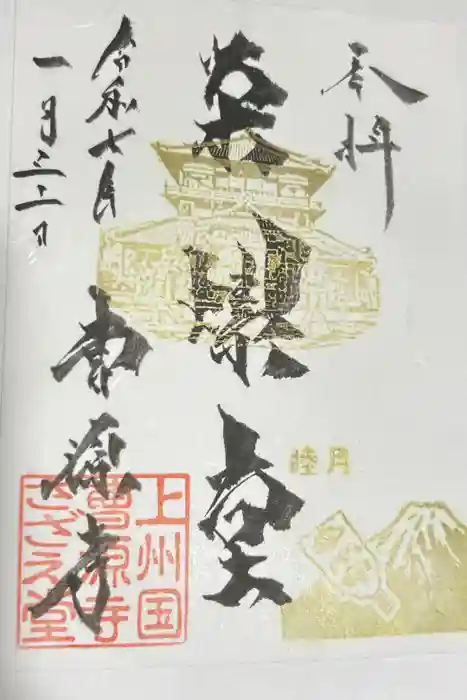 奉拝
栄螺堂
令和七年
一月三十一日
曹源寺
睦月
上州国
曹源寺
さざえ堂